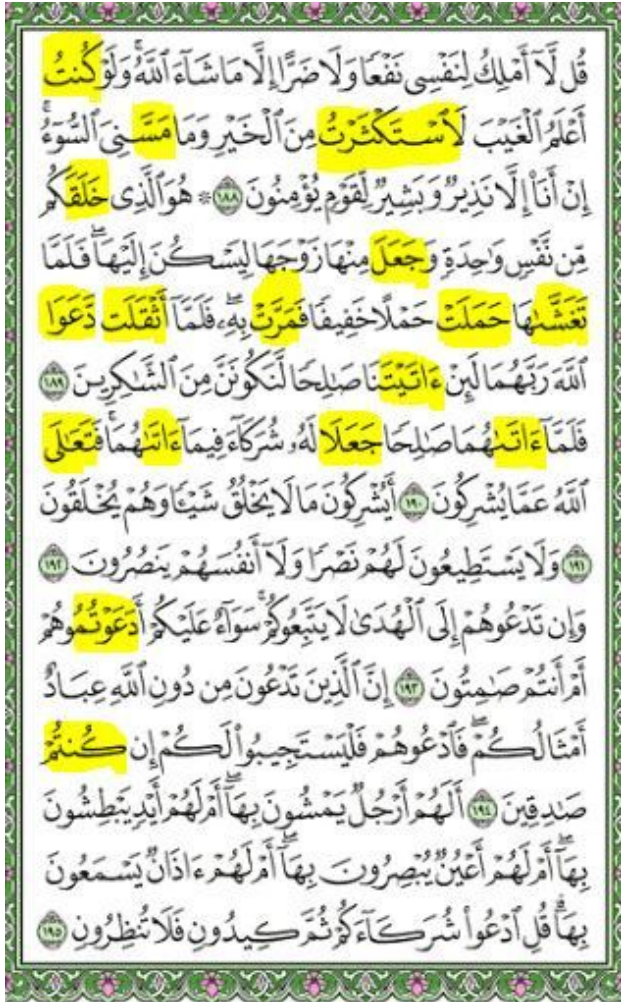 قُل لَّآ أَمْلِكُ لِنَفْسِى نَفْعًا وَلَا ضَرًّا إِلَّا مَا شَآءَ ٱللَّهُ ۚ وَلَوْ كُنتُ
أَعْلَمُ ٱلْغَيْبَ لَٱسْتَكْثَرْتُ مِنَ ٱلْخَيْرِ وَمَا مَسَّنِىَ ٱلسُّوٓءُ ۚ
إِنْ أَنَا۠ إِلَّا نَذِيرٌ وَبَشِيرٌ لِّقَوْمٍ يُؤْمِنُونَ ١٨٨ ۞ هُوَ ٱلَّذِى خَلَقَكُم
مِّن نَّفْسٍ وَٰحِدَةٍ وَجَعَلَ مِنْهَا زَوْجَهَا لِيَسْكُنَ إِلَيْهَا ۖ فَلَمَّا
تَغَشَّىٰهَا حَمَلَتْ حَمْلًا خَفِيفًا فَمَرَّتْ بِهِۦ ۖ فَلَمَّآ أَثْقَلَت دَّعَوَا
ٱللَّهَ رَبَّهُمَا لَئِنْ ءَاتَيْتَنَا صَٰلِحًا لَّنَكُونَنَّ مِنَ ٱلشَّٰكِرِينَ ١٨٩
فَلَمَّآ ءَاتَىٰهُمَا صَٰلِحًا جَعَلَا لَهُۥ شُرَكَآءَ فِيمَآ ءَاتَىٰهُمَا ۚ فَتَعَٰلَى
ٱللَّهُ عَمَّا يُشْرِكُونَ ١٩٠ أَيُشْرِكُونَ مَا لَا يَخْلُقُ شَيْـًٔا وَهُمْ يُخْلَقُونَ
١٩١ وَلَا يَسْتَطِيعُونَ لَهُمْ نَصْرًا وَلَآ أَنفُسَهُمْ يَنصُرُونَ ١٩٢
وَإِن تَدْعُوهُمْ إِلَى ٱلْهُدَىٰ لَا يَتَّبِعُوكُمْ ۚ سَوَآءٌ عَلَيْكُمْ أَدَعَوْتُمُوهُمْ
أَمْ أَنتُمْ صَٰمِتُونَ ١٩٣ إِنَّ ٱلَّذِينَ تَدْعُونَ مِن دُونِ ٱللَّهِ عِبَادٌ
أَمْثَالُكُمْ ۖ فَٱدْعُوهُمْ فَلْيَسْتَجِيبُوا۟ لَكُمْ إِن كُنتُمْ
صَٰدِقِينَ ١٩٤ أَلَهُمْ أَرْجُلٌ يَمْشُونَ بِهَآ ۖ أَمْ لَهُمْ أَيْدٍ يَبْطِشُونَ
بِهَآ ۖ أَمْ لَهُمْ أَعْيُنٌ يُبْصِرُونَ بِهَآ ۖ أَمْ لَهُمْ ءَاذَانٌ يَسْمَعُونَ
بِهَا ۗ قُلِ ٱدْعُوا۟ شُرَكَآءَكُمْ ثُمَّ كِيدُونِ فَلَا تُنظِرُونِ ١٩٥